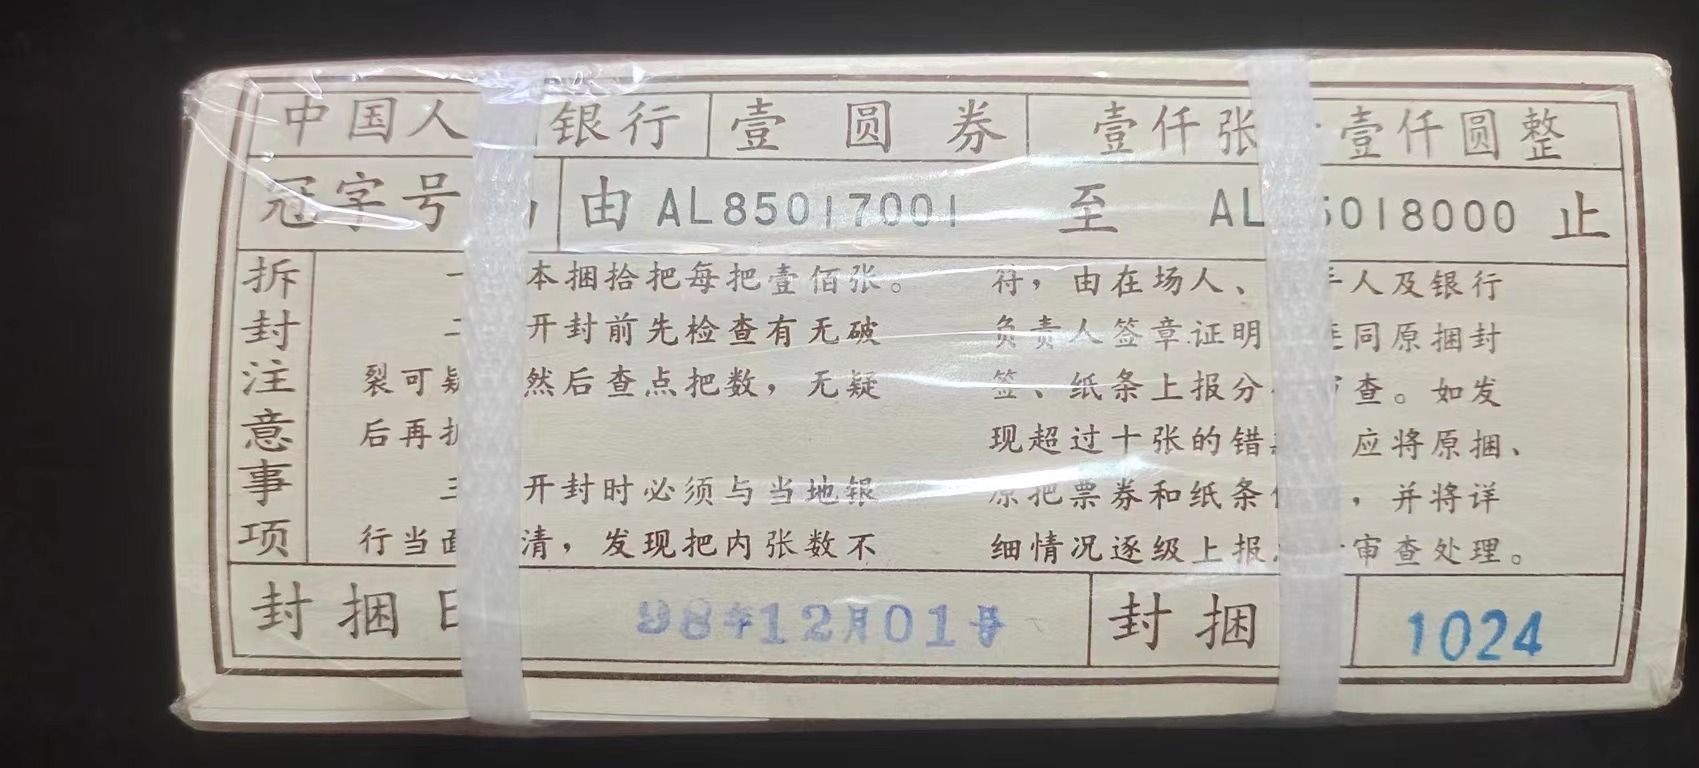 中国人 银行 壹圆券 壹仟张 壹仟圆整
冠字号 由 AL85017001 至 AL 5018000 止
拆封注意事项
一 本捆拾把每把壹佰张。
二 开封前先检查有无破
裂可疑 然后查点把数，无疑
后再拆
三 开封时必须与当地银
行当面 清，发现把内张数不
符，由在场人、 手人及银行
负责人签章证明 连同原捆封
签、纸条上报分 审查。如发
现超过十张的错 应将原捆、
原把票券和纸条 ，并将详
细情况逐级上报 审查处理。
封捆日 98年12月01日 封捆 1024